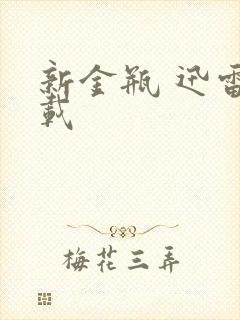 新金瓶 迅雷
载
梅花三弄